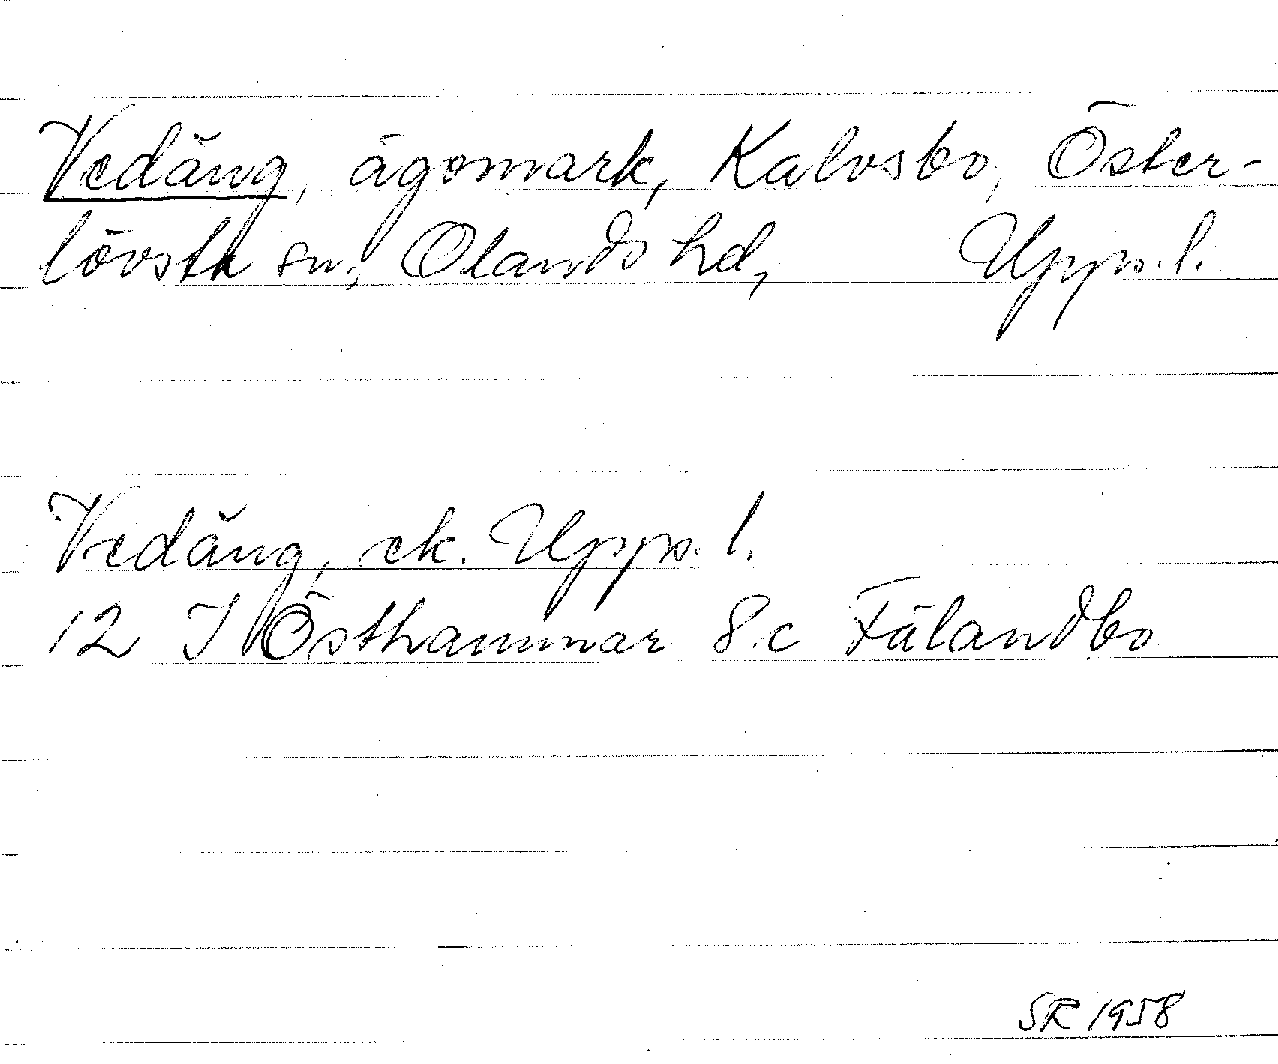 Vedäng, ägomark, Kalvsbo, Öster-
lövsta sn, Olands hd, Uppl.
Vedäng, ek. Uppl.
12 I Östhammar 8 c Fälandbo
SR 1958